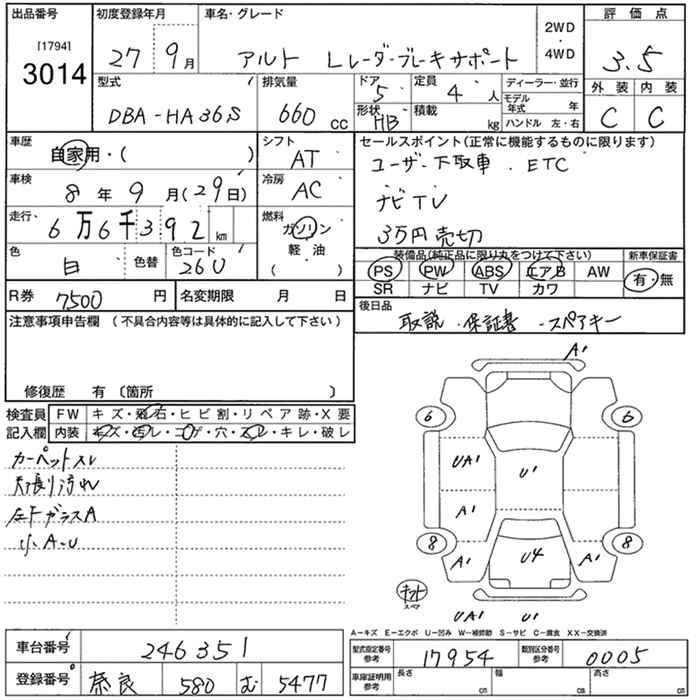 出品番号 初度登録年月 車名・グレード 2WD ・ 4WD 評価点
[1794] 3014 27 9月 アルト Lレーダーブレーキサポート 3.5
型式 排気量 ドア 5 定員 4人 ディーラー・並行 外装 内装
DBA-HA36S 660cc 形状 HB 積載 kg モデル年式 年 C C
ハンドル 左・右
車歴 自家用・( ) シフト AT セールスポイント(正常に機能するものに限ります)
ユーザー下取車 . ETC
車検 8年9月(29日) 冷房 AC ナビTV
走行 6万6千392km 燃料 ガソリン 3万円売切
色 白 色替 色コード 26U 軽・油 ( )
装備品(純正品に限り丸をつけて下さい) 新車保証書
PS PW ABS エアB AW 有・無
SR ナビ TV カワ
R券 7500円 名変期限 月 日
後日品
取説・保証書・スペアキー
注意事項申告欄(不具合内容等は具体的に記入して下さい)
修復歴 有〔箇所 〕
検査員 FW キズ・飛石・ヒビ割・リペア跡・X要
記入欄 内装 キズ・汚レ・コゲ・穴・スレ・キレ・破レ
カーペットスレ
天張り汚れ
左下ガラスA
小A-U
A1
6 6
UA1 U1
A1
8 8
A1 U4 A1
スペア
UA1 U1
A-キズ E-エクボ U-凹み W-補修跡 S-サビ C-腐食 XX-交換済
車台番号 246351
型式指定番号 参考 17954 類別区分番号 参考 0005
登録番号 奈良 580 む 5477
車庫証明用 参考 長さ cm 幅 cm 高さ cm